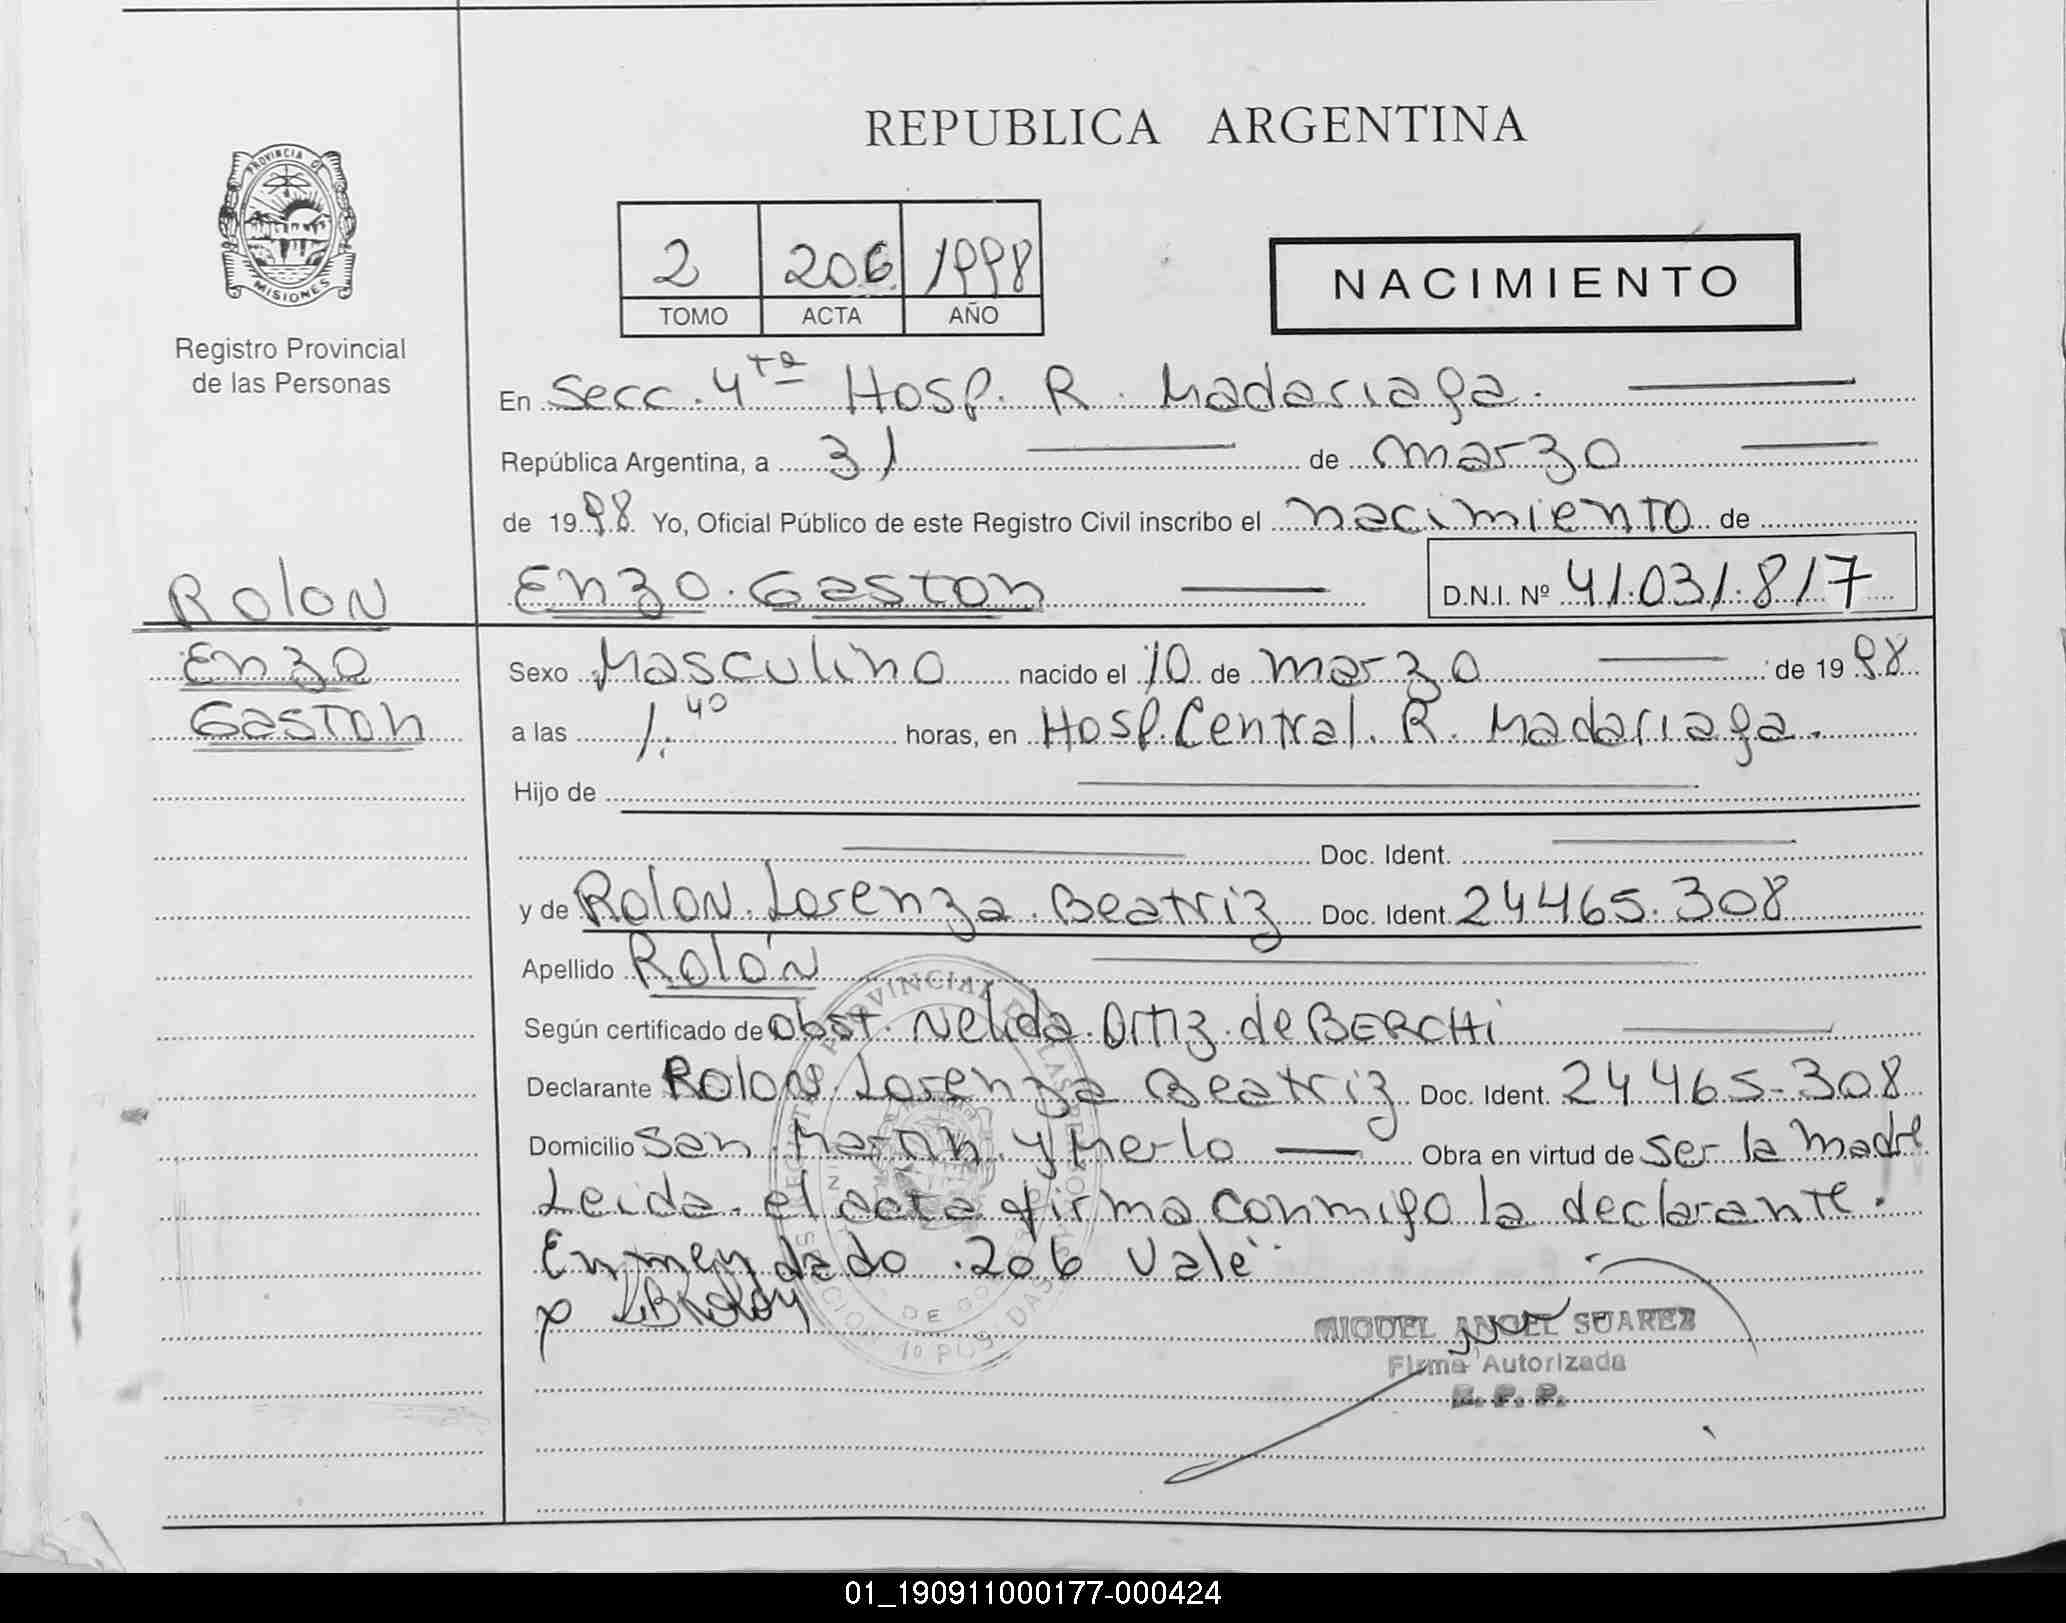 REPUBLICA ARGENTINA
PROVINCIA DE
MISIONES
Registro Provincial
de las Personas
2 206 1998
TOMO ACTA AÑO
NACIMIENTO
En Secc. 4ta Hosp. R. Madariaga.
República Argentina, a 31 de marzo
de 1998 Yo, Oficial Público de este Registro Civil inscribo el nacimiento de
Rolon
Enzo
Gaston
Enzo. Gaston D.N.I. Nº 41.031.817
Sexo Masculino nacido el 10 de marzo de 1998
a las 1.40 horas, en Hosp. Central. R. Madariaga.
Hijo de
Doc. Ident.
y de Rolon. Lorenza. Beatriz Doc. Ident. 24465.308
Apellido Rolón
Según certificado de Obst. Nelida. Ortiz. de BERCHi
Declarante Rolon. Lorenza Beatriz Doc. Ident. 24465-308
Domicilio San Martin y Merlo Obra en virtud de ser la madre
Leida el acta firma conmigo la declarante.
Enmendado .206 Vale
MIGUEL ANGEL SUAREZ
Firma Autorizada
01_190911000177-000424